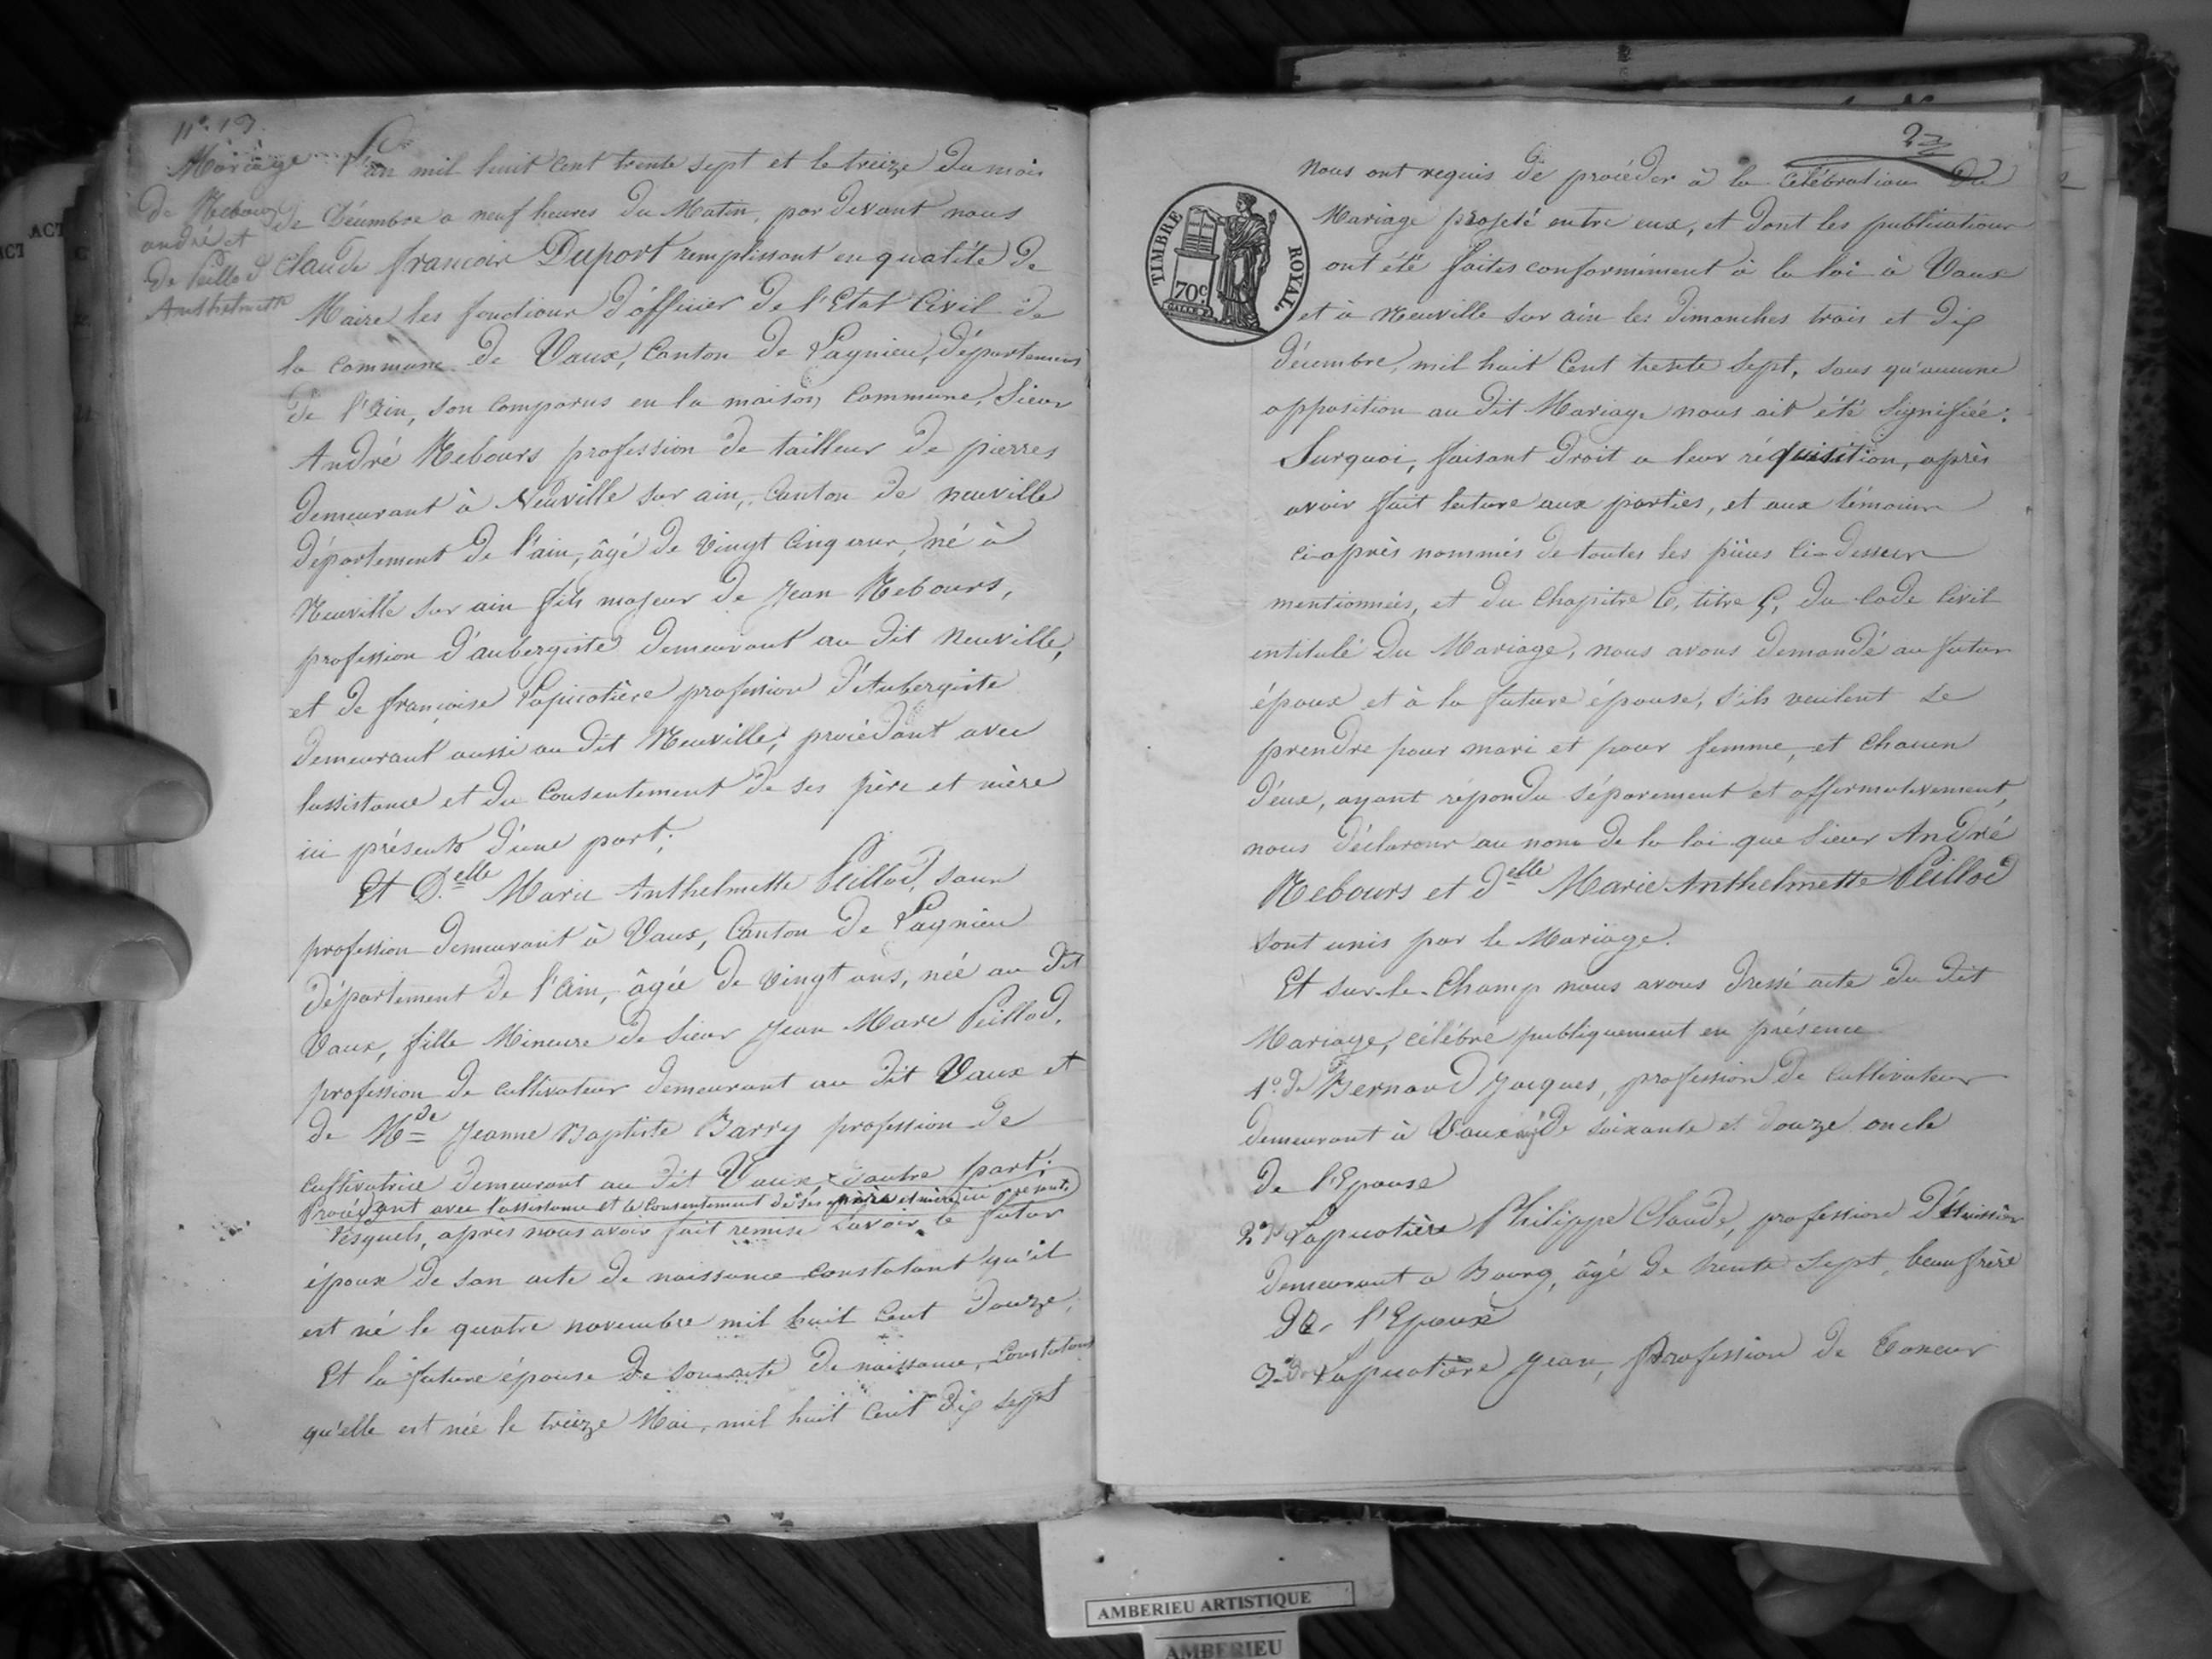 n°. 13.
Mariage
de Rebours
andré et
de Peillod
Anthelmette
L'an mil huit cent trente sept et le treize du mois
de Décembre a neuf heures du Matin, par devant nous
Claude françois Duport remplissant en qualité de
Maire les fonctions d'officier de l'Etat Civil de
la commune de Vaux, Canton de Lagnieu, département
de l'ain, son comparus en la maison Commune, Sieur
André Rebours profession de tailleur de pierres
demeurant à Neuville sur ain, Canton de neuville
département de l'ain, âgé de vingt cinq ans, né à
Neuville sur ain fils majeur de Jean Rebours,
profession d'aubergiste demeurant au dit Neuville,
et de françoise Lapicotière profession d'Aubergiste
demeurant aussi au dit Neuville, procédant avec
lassistance et du Consentement de ses père et mère
ici présents d'une part;
Et D.elle Marie Anthelmette Peillod, sans
profession demeurant à Vaux, Canton de Lagnieu
département de l'Ain, âgée de vingt ans, née au dit
Vaux, fille Mineure de Sieur Jean Marc Peillod,
profession de cultivateur demeurant au dit Vaux et
de Mde Jeanne Baptiste Barry profession de
cultivatrice demeurant au dit Vaux, d'autre part;
Procédant avec l'assistance et le consentement de ses père et mère ici présents
Lesquels, après nous avoir fait remise savoir le futur
époux de son acte de naissance constatant qu'il
est né le quatre novembre mil huit cent douze,
Et la future épouse de son acte de naissance, Constatant
qu'elle est née le treize Mai, mil huit cent dix sept
TIMBRE ROYAL.
70c
nous ont requis de procéder à la célébration du
Mariage projeté entre eux, et dont les publications
ont été faites conformément à la loi à Vaux
et à Neuville sur ain les dimanches trois et dix
décembre, mil huit Cent trente sept, sans qu'aucune
opposition au dit Mariage nous ait été signifiée:
Surquoi, faisant droit a leur réquisition, après
avoir fait lecture aux parties, et aux témoins
ci-après nommés de toutes les pièces ci-dessus
mentionnées, et du Chapitre 6, titre 5, du Code Civil
intitulé du Mariage, nous avons demandé au futur
époux et à la future épouse, s'ils veulent se
prendre pour mari et pour femme, et chacun
d'eux, ayant répondu séparement et affirmativement,
nous déclarons au nom de la loi que Sieur André
Rebours et delle Marie Anthelmette Peillod
sont unis par le Mariage.
Et sur-le-Champ nous avons dressé acte du dit
Mariage, célébré publiquement en présence
1° de Bernard Jacques, profession de cultivateur
demeurant à Vaux âgé de soixante et douze oncle
de l'Epouse
2° Lapicotière Philippe Claude, profession d'huissier
demeurant a Bourg, âgé de trente sept, beau frère
de l'Epoux
3° Lapicotière Jean, profession de
AMBERIEU ARTISTIQUE
AMBERIEU